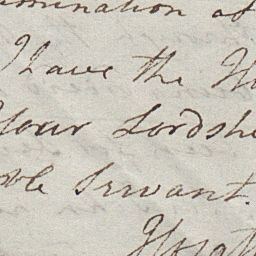 mination of
I have the Ho
Your Lordshi
ble Servant.